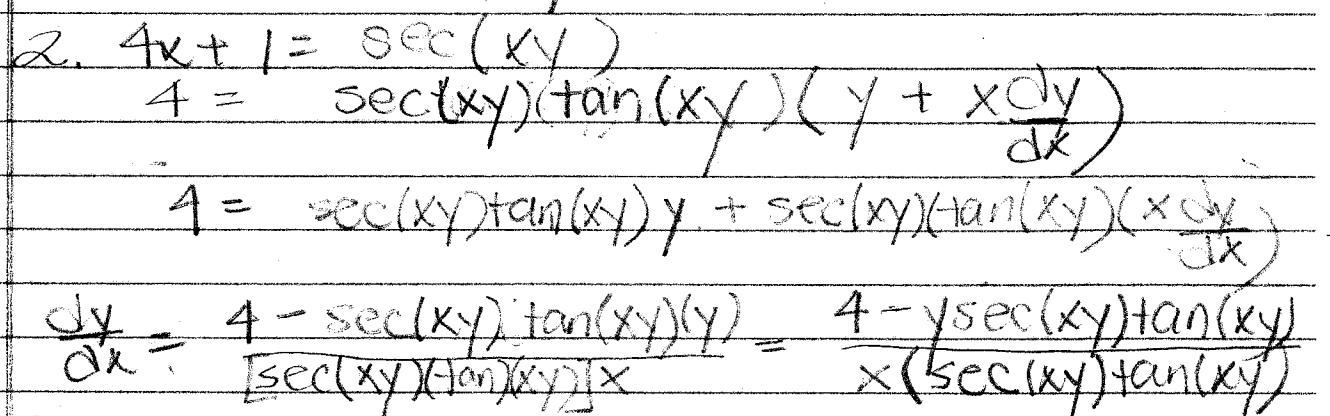 2. 4x + 1 = sec(xy)
4 = sec(xy)(tan(xy))(y + x dy/dx)
4 = sec(xy)tan(xy)y + sec(xy)(tan(xy)(x dy/dx)
dy/dx = 4 - sec(xy) tan(xy)(y) / [sec(xy)(tan)(xy)]x = 4 - ysec(xy)tan(xy) / x(sec(xy)tan(xy)